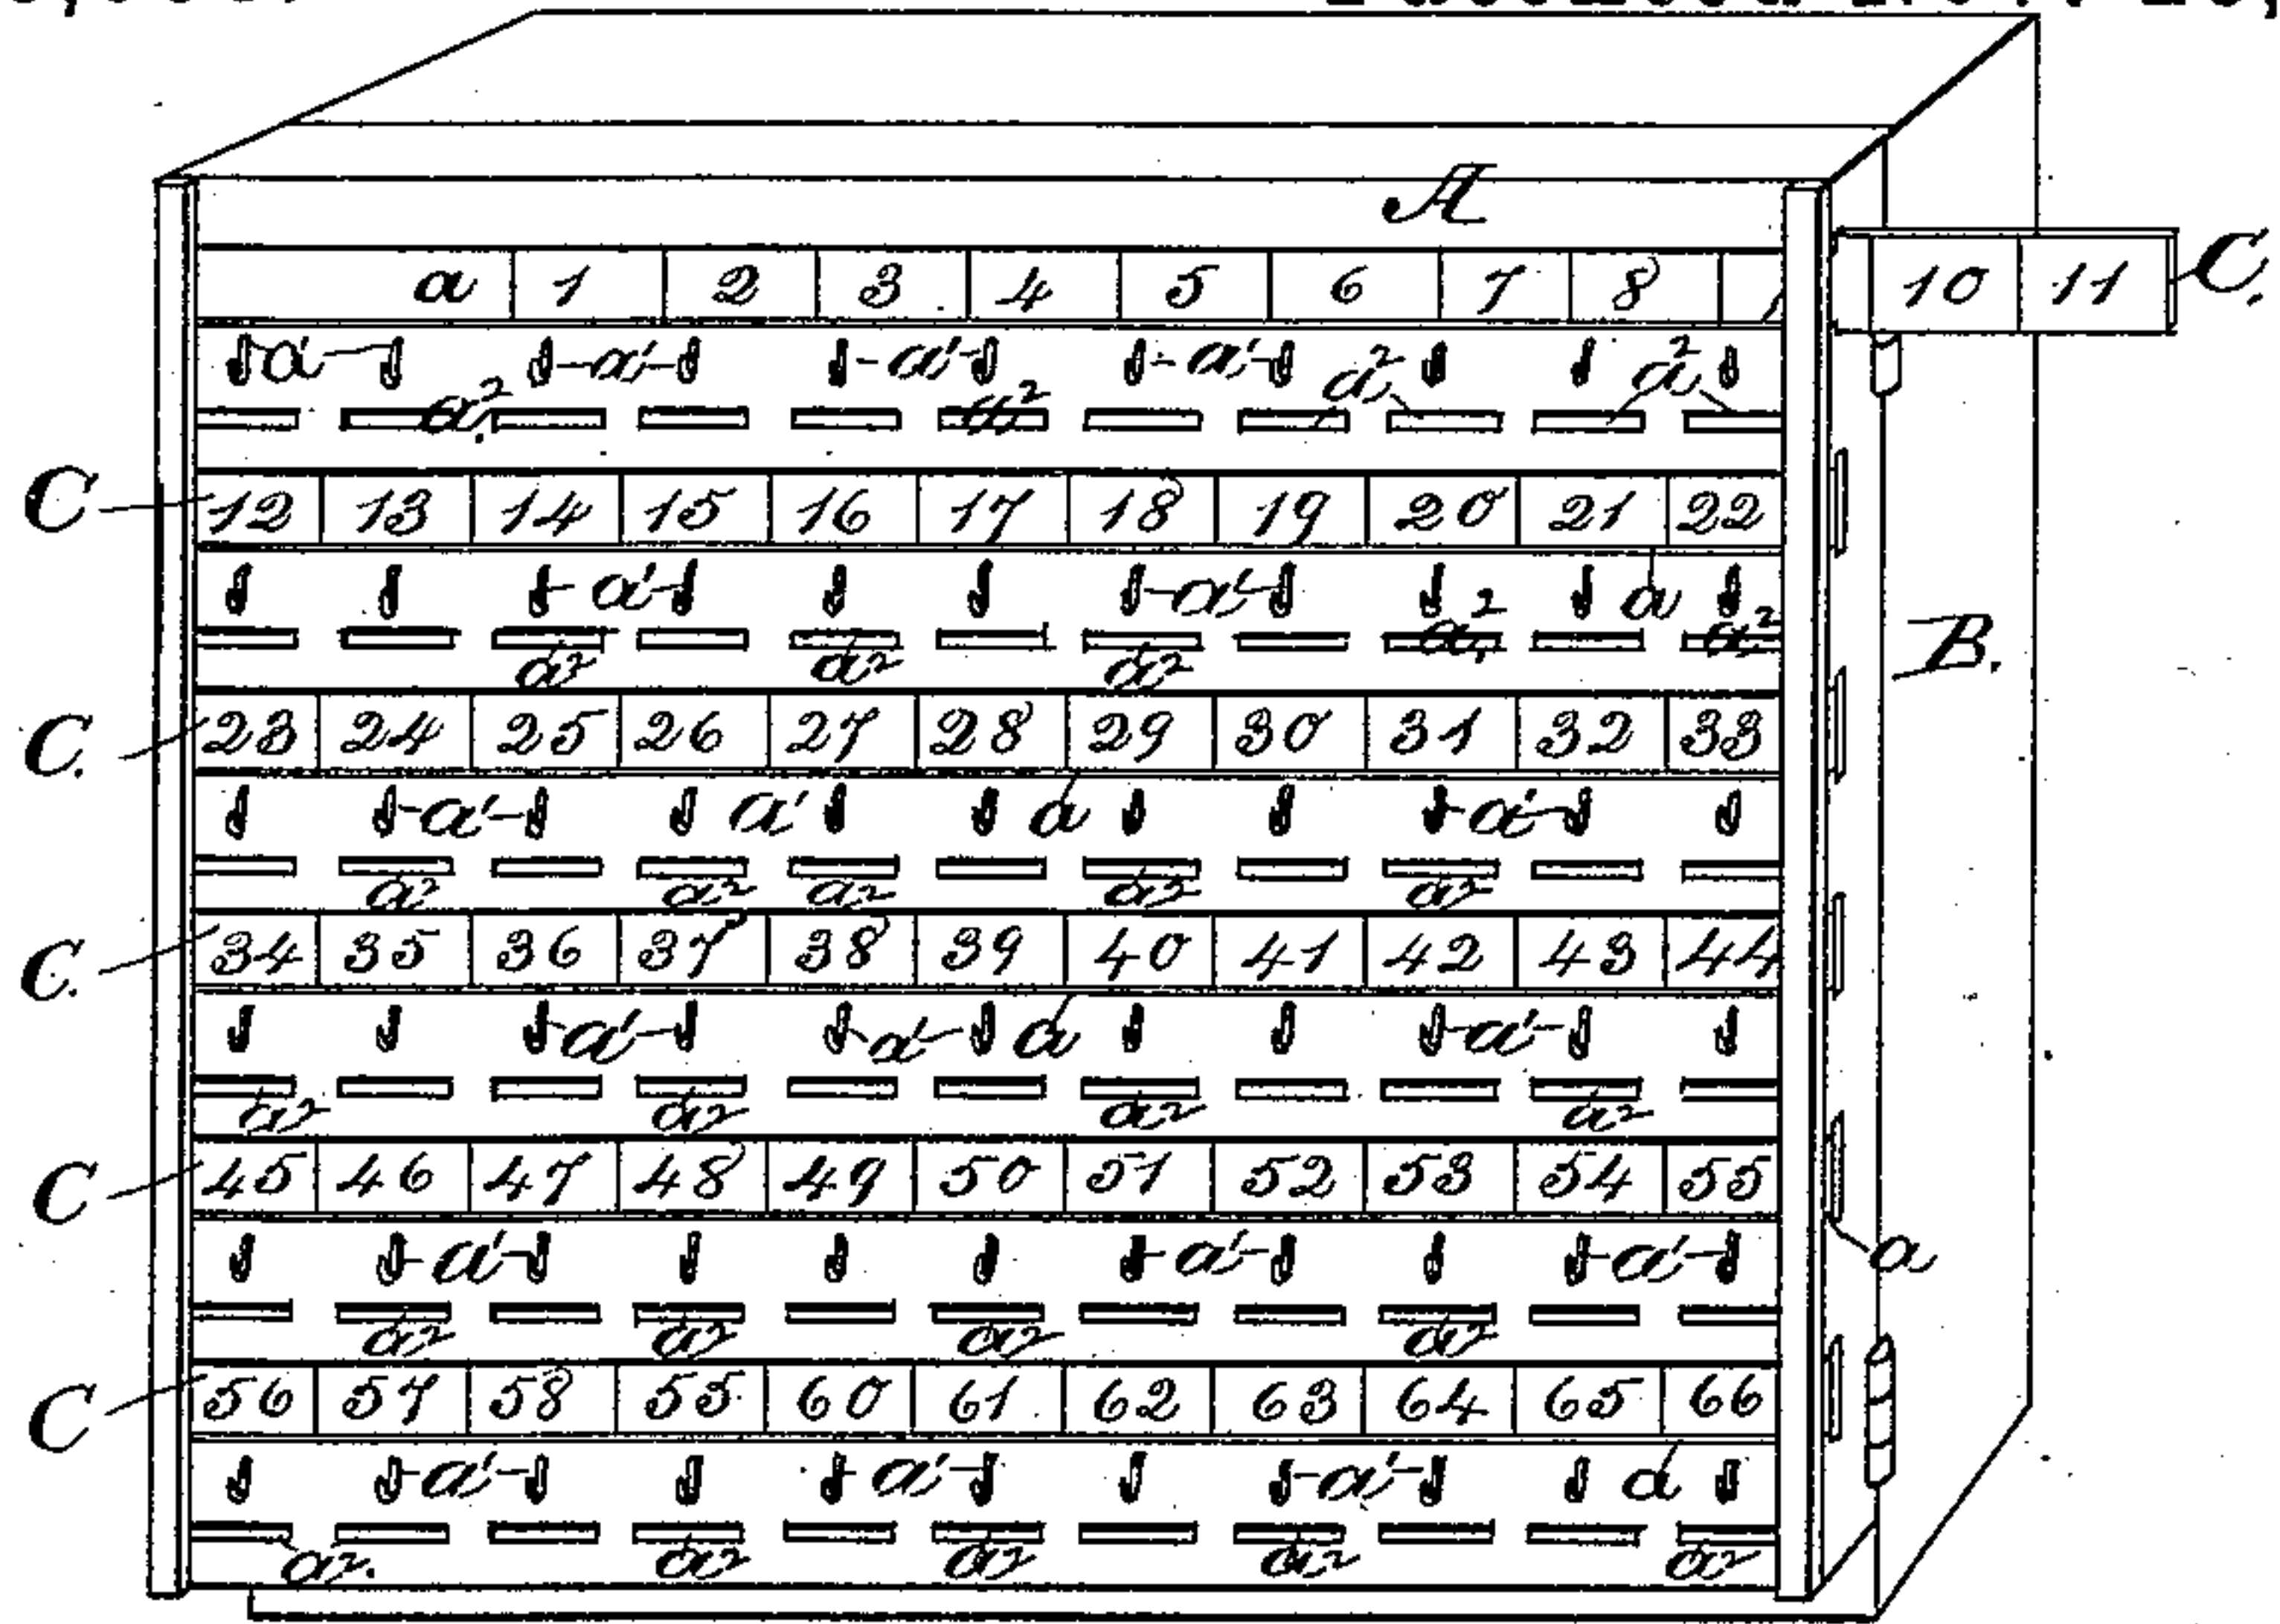 A
a 1 2 3 4 5 6 7 8 10 11 C.
a' a' a' a' a² a²
a². a²
C 12 13 14 15 16 17 18 19 20 21 22
a' a' a
a² a² a² a² a² B.
C. 23 24 25 26 27 28 29 30 31 32 33
a' a' a a'
a² a² a² a² a²
C. 34 35 36 37 38 39 40 41 42 43 44
a' a' a a'
a² a² a² a²
C 45 46 47 48 49 50 51 52 53 54 55
a' a' a' a
a² a² a² a²
C 56 57 58 55 60 61 62 63 64 65 66
a' a' a' a
a². a² a² a² a²